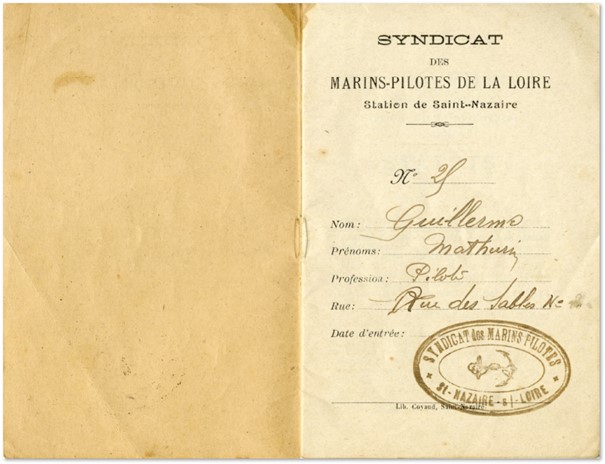 SYNDICAT
DES
MARINS-PILOTES DE LA LOIRE
Station de Saint-Nazaire
N° 25
Nom: Guillerme
Prénoms: Mathurin
Profession: Pilote
Rue: Rue des Sables N°
Date d'entrée:
SYNDICAT des MARINS PILOTES
St-NAZAIRE-s/-LOIRE
Lib. Coyaud, Saint-Nazaire